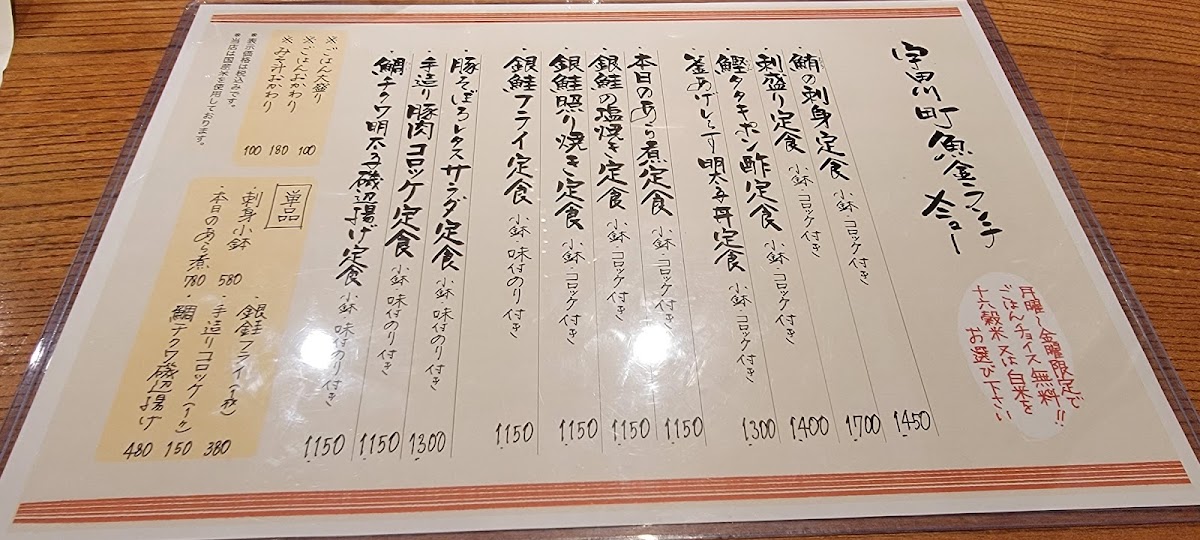 宇田川町魚金ランチ
メニュー
月曜〜金曜限定で
ごはんチョイス無料!!
十六穀米又は白米を
お選び下さい
・鮪の刺身定食 小鉢・コロッケ付き 1450
・刺盛り定食 小鉢・コロッケ付き 1700
・鰹タタキポン酢定食 小鉢・コロッケ付き 1400
・釜あげしらす明太子丼定食 小鉢・コロッケ付き 1300
・本日のあら煮定食 小鉢・コロッケ付き 1150
・銀鮭の塩焼き定食 小鉢・コロッケ付き 1150
・銀鮭照り焼き定食 小鉢・コロッケ付き 1150
・銀鮭フライ定食 小鉢・味付のり付き 1150
・豚そぼろレタスサラダ定食 小鉢・味付のり付き 1300
・手造り豚肉コロッケ定食 小鉢・味付のり付き 1150
・鯛チクワ明太子磯辺揚げ定食 小鉢・味付のり付き 1150
※ごはん大盛り 100
※ごはんおかわり 180
※みそ汁おかわり 100
●表示価格は税込みです。
●当店は国産米を使用しております。
単品
・刺身小鉢 580
・本日のあら煮 780
・銀鮭フライ(1枚) 380
・手造りコロッケ(1ヶ) 150
・鯛チクワ磯辺揚げ 480